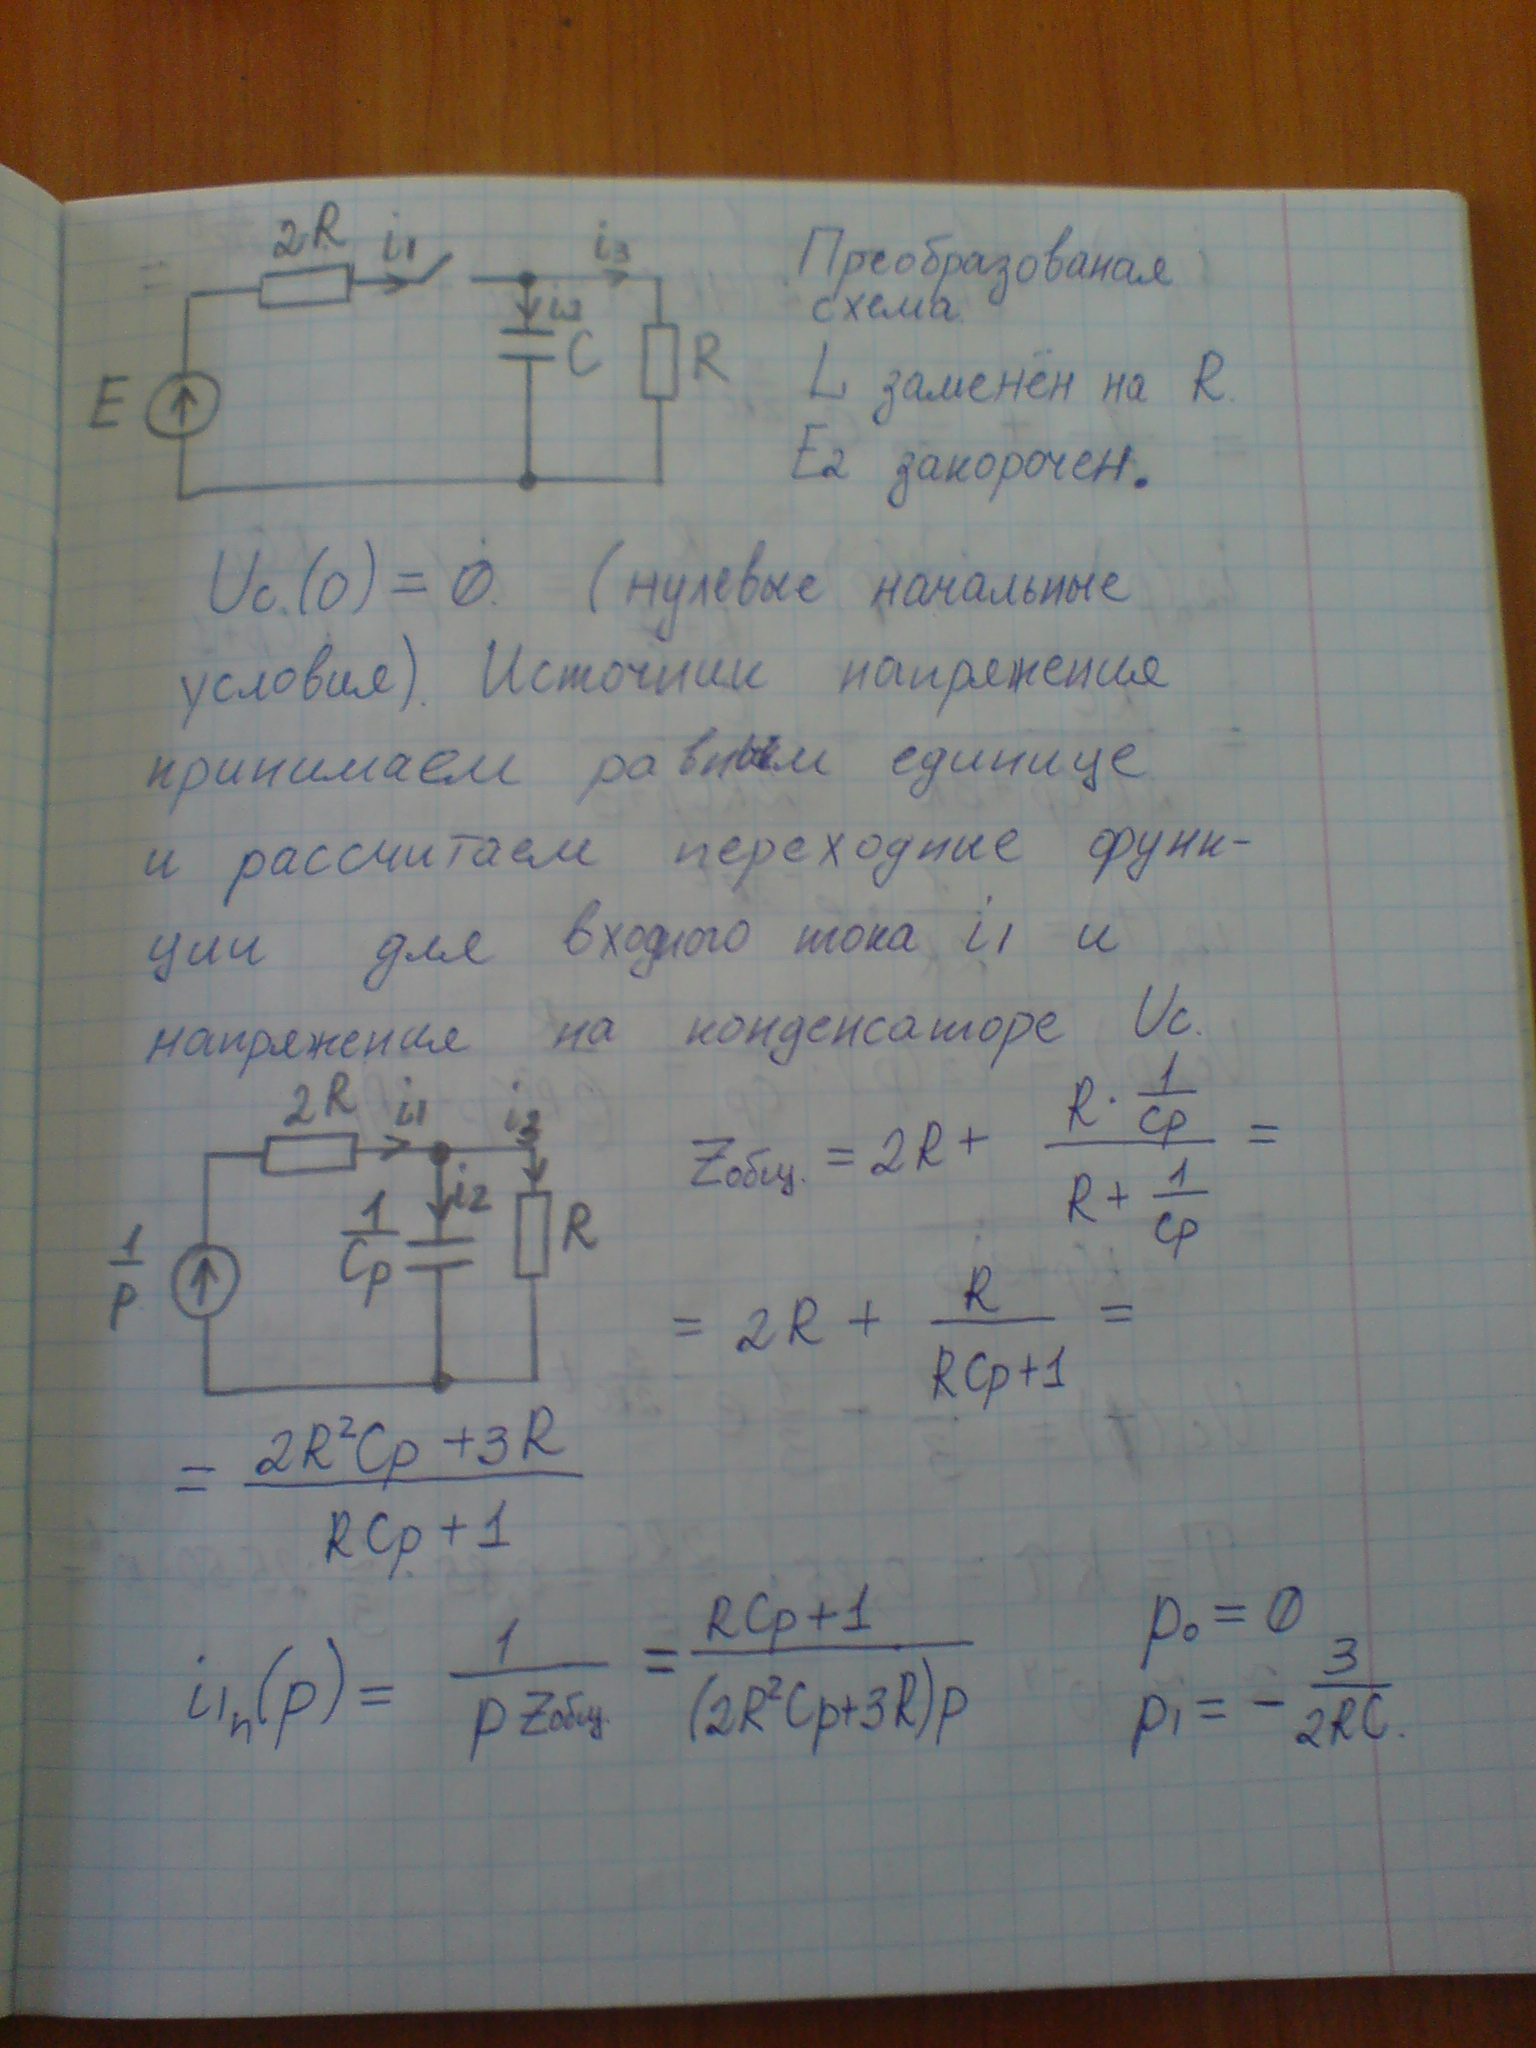 2R i1 i3
E i2 C R
Преобразованая
схема
L заменён на R.
E2 закорочен.
Uc.(0) = 0. (нулевые начальные
условия). Источник напряжения
принимаем равным единице
и рассчитаем переходные функ-
ции для входного тока i1 и
напряжения на конденсаторе Uc.
2R i1 i3
1/p 1/Cp i2 R
Zобщ. = 2R + (R · 1/Cp)/(R + 1/Cp) =
= 2R + R/(RCp+1) =
= (2R²Cp + 3R)/(RCp + 1)
i1п(p) = 1/(p Zобщ.) = (RCp+1)/((2R²Cp+3R)p)
p0 = 0
p1 = - 3/(2RC.